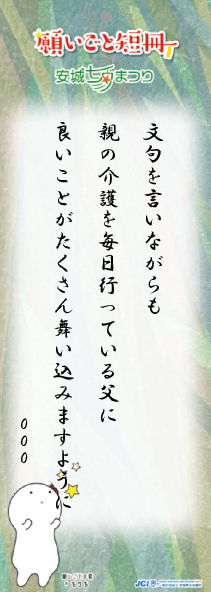 願いごと短冊
安城七夕まつり
文句を言いながらも
親の介護を毎日行っている父に
良いことがたくさん舞い込みますように
○○○
JCI